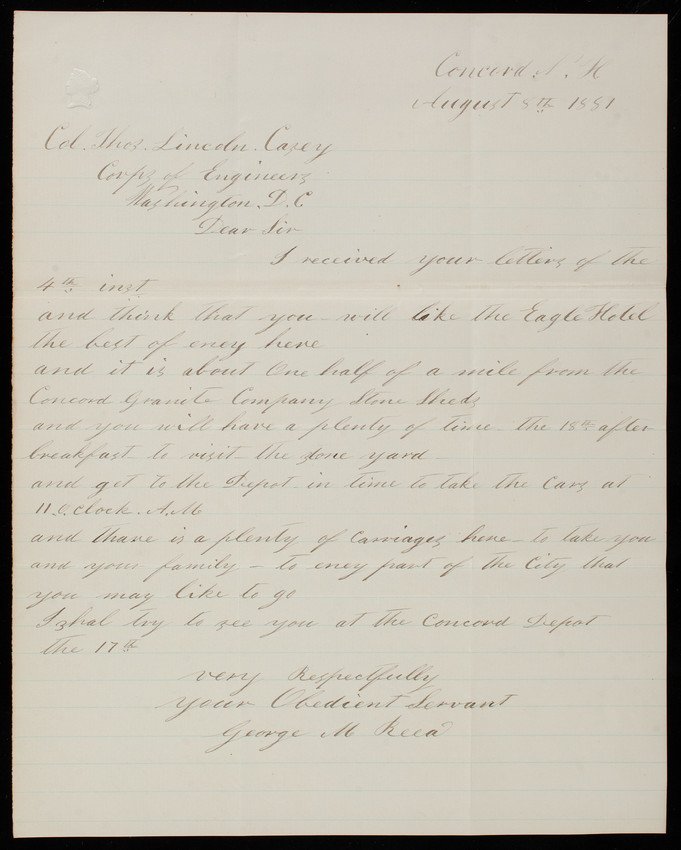 Concord. N. H
August 8th 1881
Col. Thos. Lincoln. Casey
Corps of Engineers
Washington. D. C
Dear Sir
I received your letters of the
4th inst
and think that you will like the Eagle Hotel
the best of eney here
and it is about One half of a mile from the
Concord Granite Company Stone Sheds
and you will have a plenty of time the 18th after
breakfast to visit the stone yard
and get to the Depot in time to take the Cars at
11. O. Clock. A. M
and thare is a plenty of Carriages here to take you
and your family - to eney part of the City that
you may like to go
I shal try to see you at the Concord Depot
the 17th
very Respectfully
your Obedient Servant
George M Reed